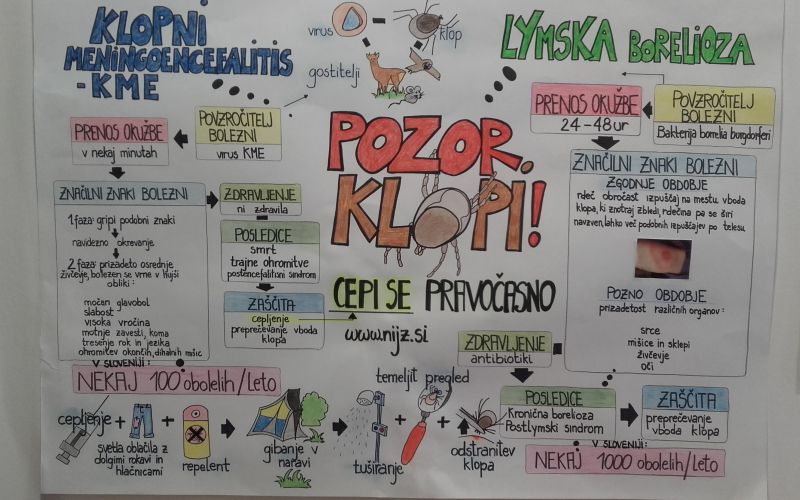 KLOPNI
MENINGOENCEFALITIS
- KME
virus
klop
gostitelji
LYMSKA BORELIOZA
POVZROČITELJ
BOLEZNI
virus KME
PRENOS OKUŽBE
v nekaj minutah
ZNAČILNI ZNAKI BOLEZNI
1. faza: gripi podobni znaki
navidezno okrevanje
2. faza: prizadeto osrednje
živčevje, bolezen se vrne v hujši
obliki:
močan glavobol
slabost
visoka vročina
motnje zavesti, koma
tresenje rok in jezika
ohromitev okončin, dihalnih mišic
ZDRAVLJENJE
ni zdravila
POSLEDICE
smrt
trajne ohromitve
postencefalitisni sindrom
ZAŠČITA
cepljenje
preprečevanje vboda
klopa
V SLOVENIJI:
NEKAJ 100 obolelih/leto
POZOR,
KLOPI!
CEPI SE PRAVOČASNO
www.nijz.si
POVZROČITELJ
BOLEZNI
Bakterija borrelia burgdorferi
PRENOS OKUŽBE
24-48 ur
ZNAČILNI ZNAKI BOLEZNI
ZGODNJE OBDOBJE
rdeč obročast izpuščaj na mestu vboda
klopa, ki znotraj zbledi, rdečina pa se širi
navzven, lahko več podobnih izpuščajev po telesu
POZNO OBDOBJE
prizadetost različnih organov:
srce
mišice in sklepi
živčevje
oči
ZDRAVLJENJE
antibiotiki
POSLEDICE
Kronična borelioza
Postlymski sindrom
ZAŠČITA
preprečevanje
vboda klopa
V SLOVENIJI:
NEKAJ 1000 obolelih/leto
cepljenje
svetla oblačila z
dolgimi rokavi in
hlačnicami
repelent
gibanje v
naravi
tuširanje
temeljit pregled
odstranitev
klopa